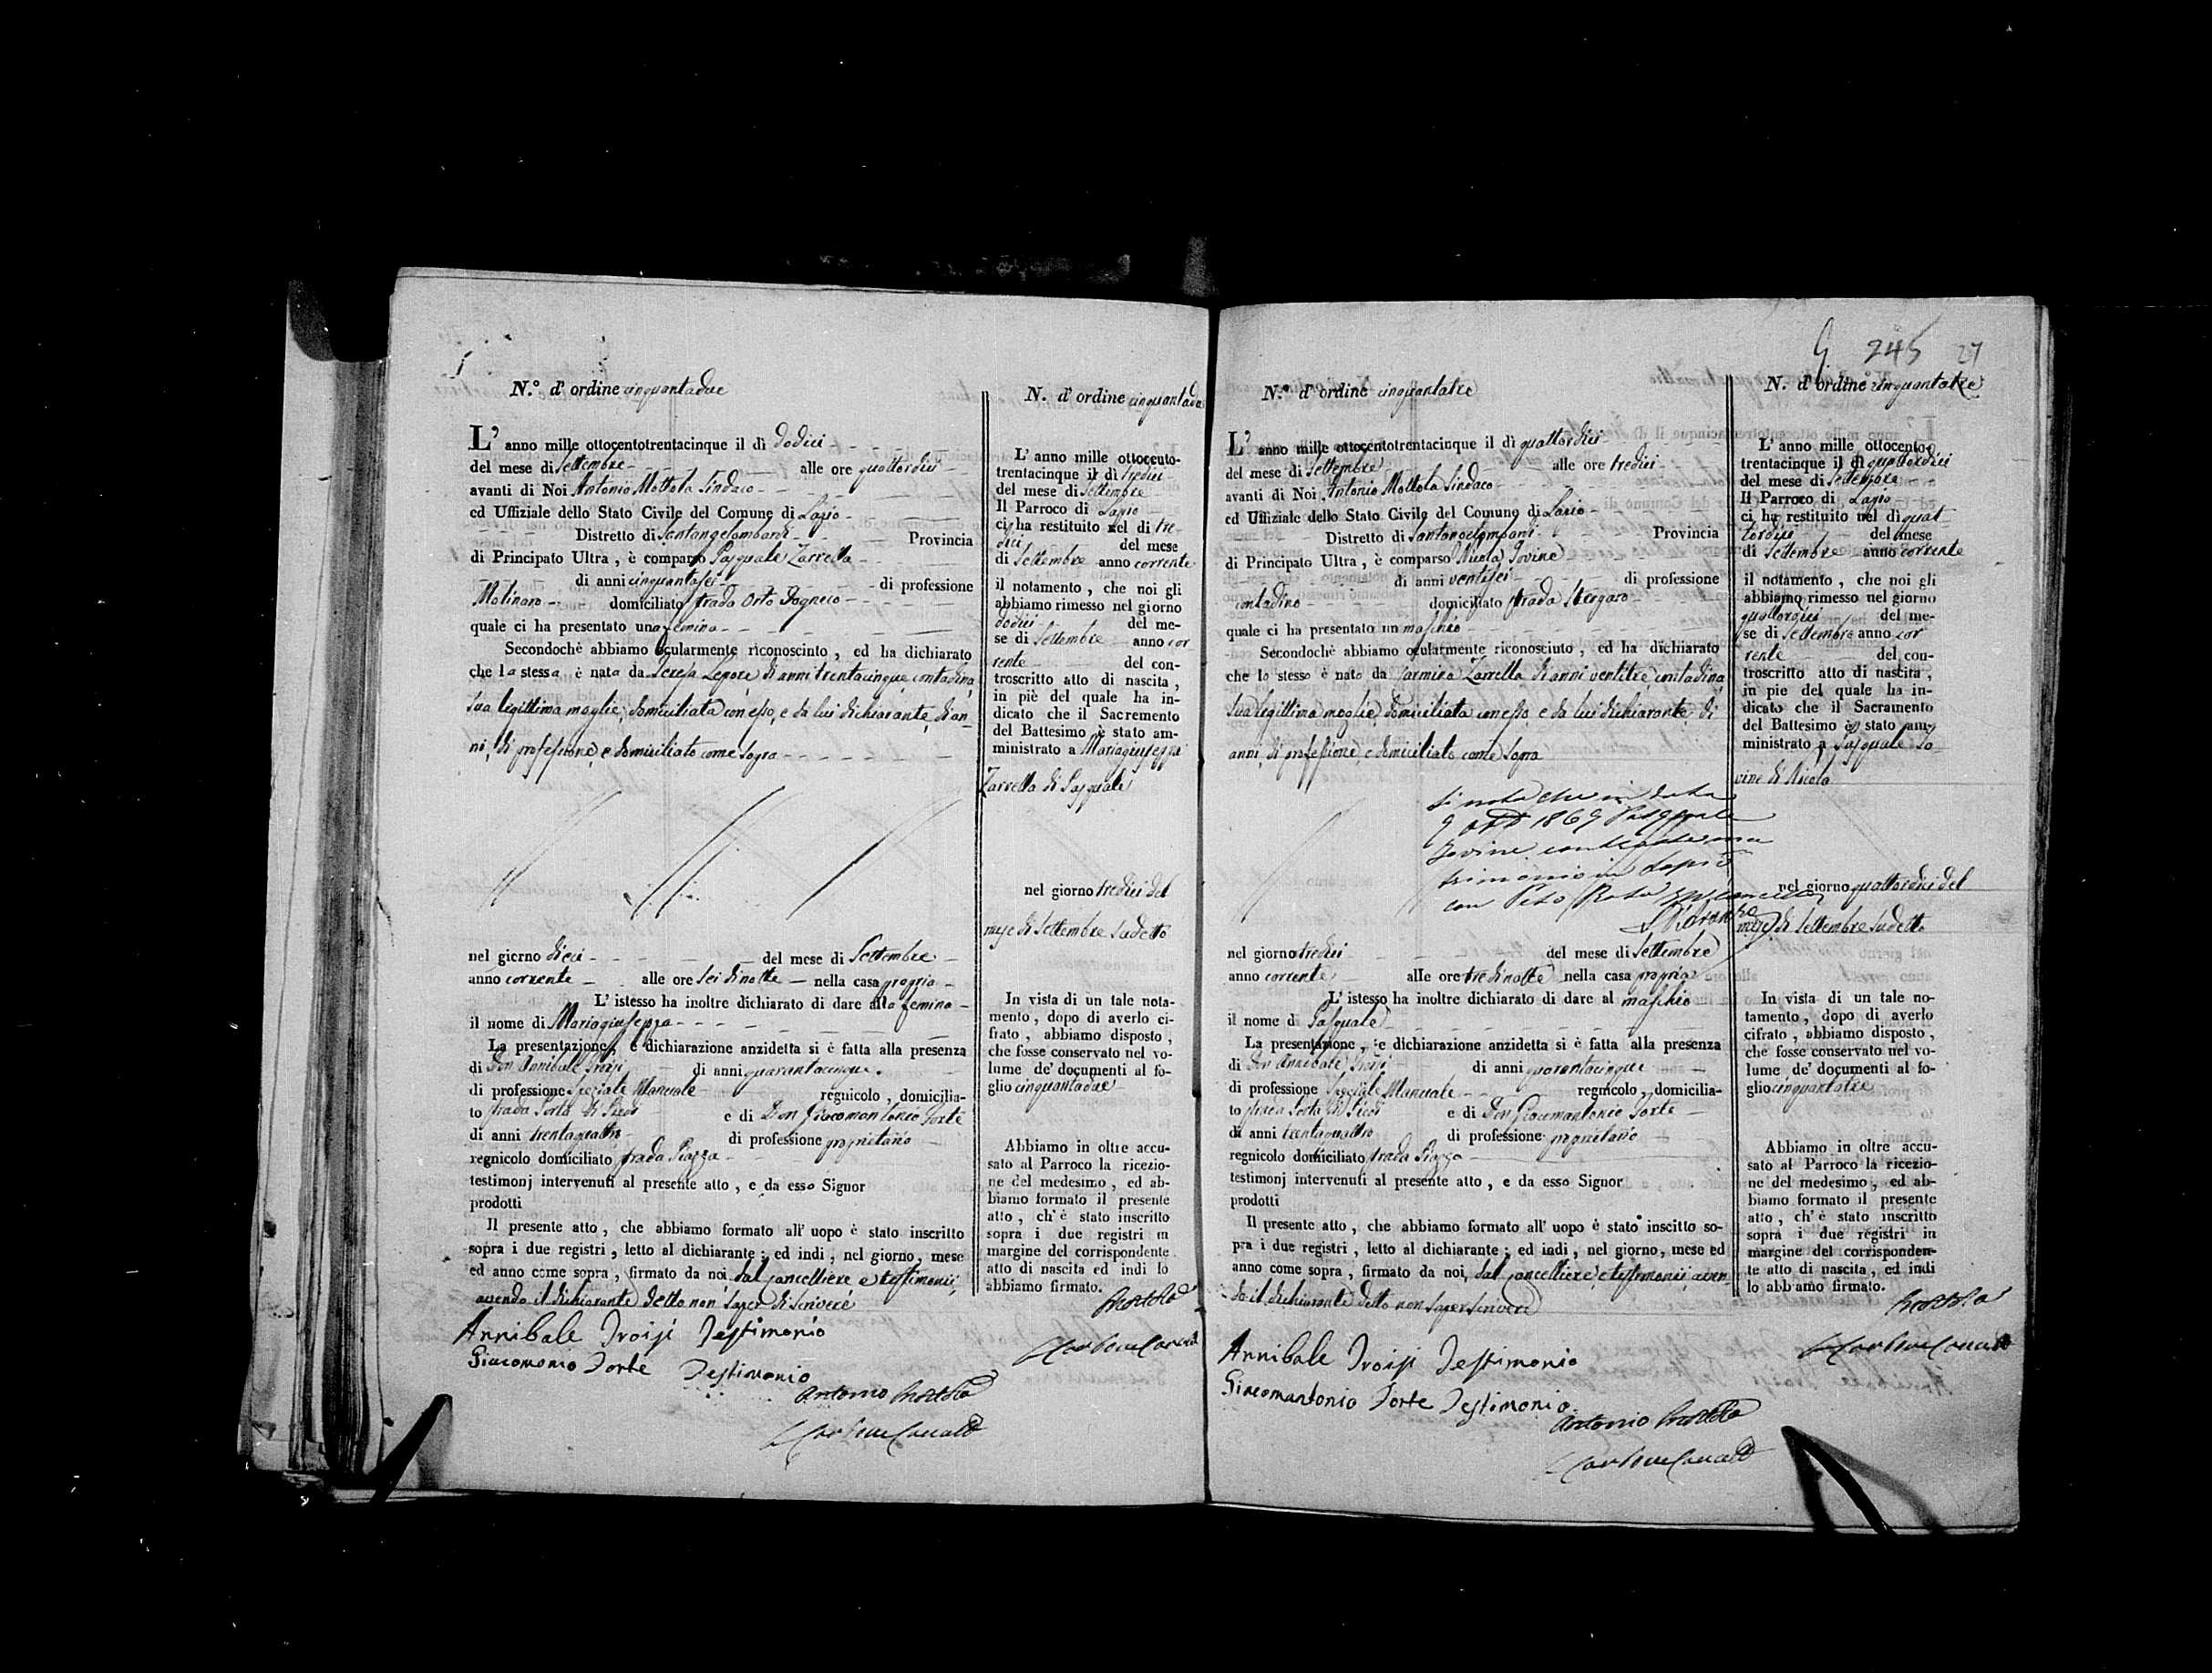 N.° d'ordine cinquantadue
L'anno mille ottocentotrentacinque il dì dodici
del mese di Settembre alle ore quattordici
avanti di Noi Antonio Mottola Sindaco
ed Uffiziale dello Stato Civile del Comune di Lapio
Distretto di Santangelombardi Provincia
di Principato Ultra, è comparso Pasquale Zarrella
di anni cinquantasei di professione
Molinaro domiciliato strada Orto
quale ci ha presentato una femina
Secondochè abbiamo ocularmente riconosciuto, ed ha dichiarato
che la stessa è nata da Teresa Lepore di anni trentacinque contadina
sua legittima moglie, domiciliata con esso, e da lui dichiarante, di an-
ni, di professione, e domiciliato come sopra
nel giorno dieci del mese di Settembre
anno corrente alle ore sei di notte nella casa propria
L'istesso ha inoltre dichiarato di dare alla femina
il nome di Mariagiuseppa
La presentazione, e dichiarazione anzidetta si è fatta alla presenza
di Don Annibale Troisi di anni quarantacinque
di professione Speziale Manuale regnicolo, domicilia-
to strada Porta di e di Don Giacomantonio Forte
di anni trentaquattro di professione proprietario
regnicolo domiciliato strada Piazza
testimonj intervenuti al presente atto, e da esso Signor
prodotti
Il presente atto, che abbiamo formato all' uopo è stato inscritto
sopra i due registri, letto al dichiarante; ed indi, nel giorno, mese
ed anno come sopra, firmato da noi, dal Cancelliere e testimonii,
avendo il dichiarante detto non saper di scrivere
Annibale Troisi Testimonio
Giacomonio Forte Testimonio
Antonio Mottola
N. d'ordine cinquantadue
L'anno mille ottocento-
trentacinque il dì tredici
del mese di Settembre
Il Parroco di Lapio
ci ha restituito nel dì tre-
dici del mese
di Settembre anno corrente
il notamento, che noi gli
abbiamo rimesso nel giorno
dodici del me-
se di Settembre anno cor
rente del con-
troscritto atto di nascita,
in piè del quale ha in-
dicato che il Sacremento
del Battesimo è stato am-
ministrato a Mariagiuseppa
Zarrella di Pasquale
nel giorno tredici del
mese di Settembre sudetto
In vista di un tale nota-
mento, dopo di averlo ci-
frato, abbiamo disposto,
che fosse conservato nel vo-
lume de' documenti al fo-
glio cinquantadue
Abbiamo in oltre accu-
sato al Parroco la ricezio-
ne del medesimo, ed ab-
biamo formato il presente
atto, ch'è stato inscritto
sopra i due registri in
margine del corrispondente
atto di nascita ed indi lo
abbiamo firmato.
Mottola
245 27
N.° d'ordine cinquantatre
L'anno mille ottocentotrentacinque il dì quattordici
del mese di Settembre alle ore tredici
avanti di Noi Antonio Mottola Sindaco
ed Uffiziale dello Stato Civile del Comune di Lapio
Distretto di Santangelombardi Provincia
di Principato Ultra, è comparso Nicola Jovine
di anni ventisei di professione
contadino domiciliato strada
quale ci ha presentato un maschio
Secondochè abbiamo ocularmente riconosciuto, ed ha dichiarato
che lo stesso è nato da Carmina Zarrella di anni ventitre, contadina
sua legittima moglie, domiciliata con esso e da lui dichiarante, di
anni, di professione, e domiciliato come sopra
Si nota che in data
9 1869 Pasquale
Jovine contrasse ma
trimonio in Lapio
con
nel giorno tredici del mese di Settembre
anno corrente alle ore tre di notte nella casa propria
L'istesso ha inoltre dichiarato di dare al maschio
il nome d Pasquale
La presentazione, e dichiarazione anzidetta si è fatta alla presenza
di Don Annibale Troisi di anni quarantacinque
di professione Speziale Manuale regnicolo, domicilia-
to strada Porta di e di Don Giacomantonio Forte
di anni trentaquattro di professione proprietario
regnicolo domiciliato strada Piazza
testimonj intervenuti al presente atto, e da esso Signor
prodotti
Il presente atto, che abbiamo formato all' uopo è stato inscitto so-
pra i due registri, letto al dichiarante; ed indi, nel giorno, mese ed
anno come sopra, firmato da noi, dal Cancelliere, e testimonii, aven-
do il dichiarante detto non saper scrivere
Annibale Troisi Testimonio
Giacomantonio Forte Testimonio
Antonio Mottola
N. d'ordine cinquantatre
L'anno mille ottocento
trentacinque il dì quattordici
del mese di Settembre
Il Parroco di Lapio
ci ha restituito nel dì quat
tordici del mese
di Settembre anno corrente
il notamento, che noi gli
abbiamo rimesso nel giorno
quattordici del me-
se di Settembre anno cor
rente del con-
troscritto atto di nascita,
in pie del quale ha in-
dicato che il Sacramento
del Battesimo è stato am-
ministrato a Pasquale Jo
vine di Nicola
nel giorno quattordici del
mese di Settembre sudetto
In vista di un tale no-
tamento, dopo di averlo
cifrato, abbiamo disposto,
che fosse conservato nel vo-
lume de' documenti al fo-
glio cinquantatre
Abbiamo in oltre accu-
sato al Parroco la ricezio-
ne del medesimo, ed ab-
biamo formato il presente
atto, ch'è stato inscritto
sopra i due registri in
margine del corrisponden-
te atto di nascita, ed indi
lo abbiamo firmato.
Mottola